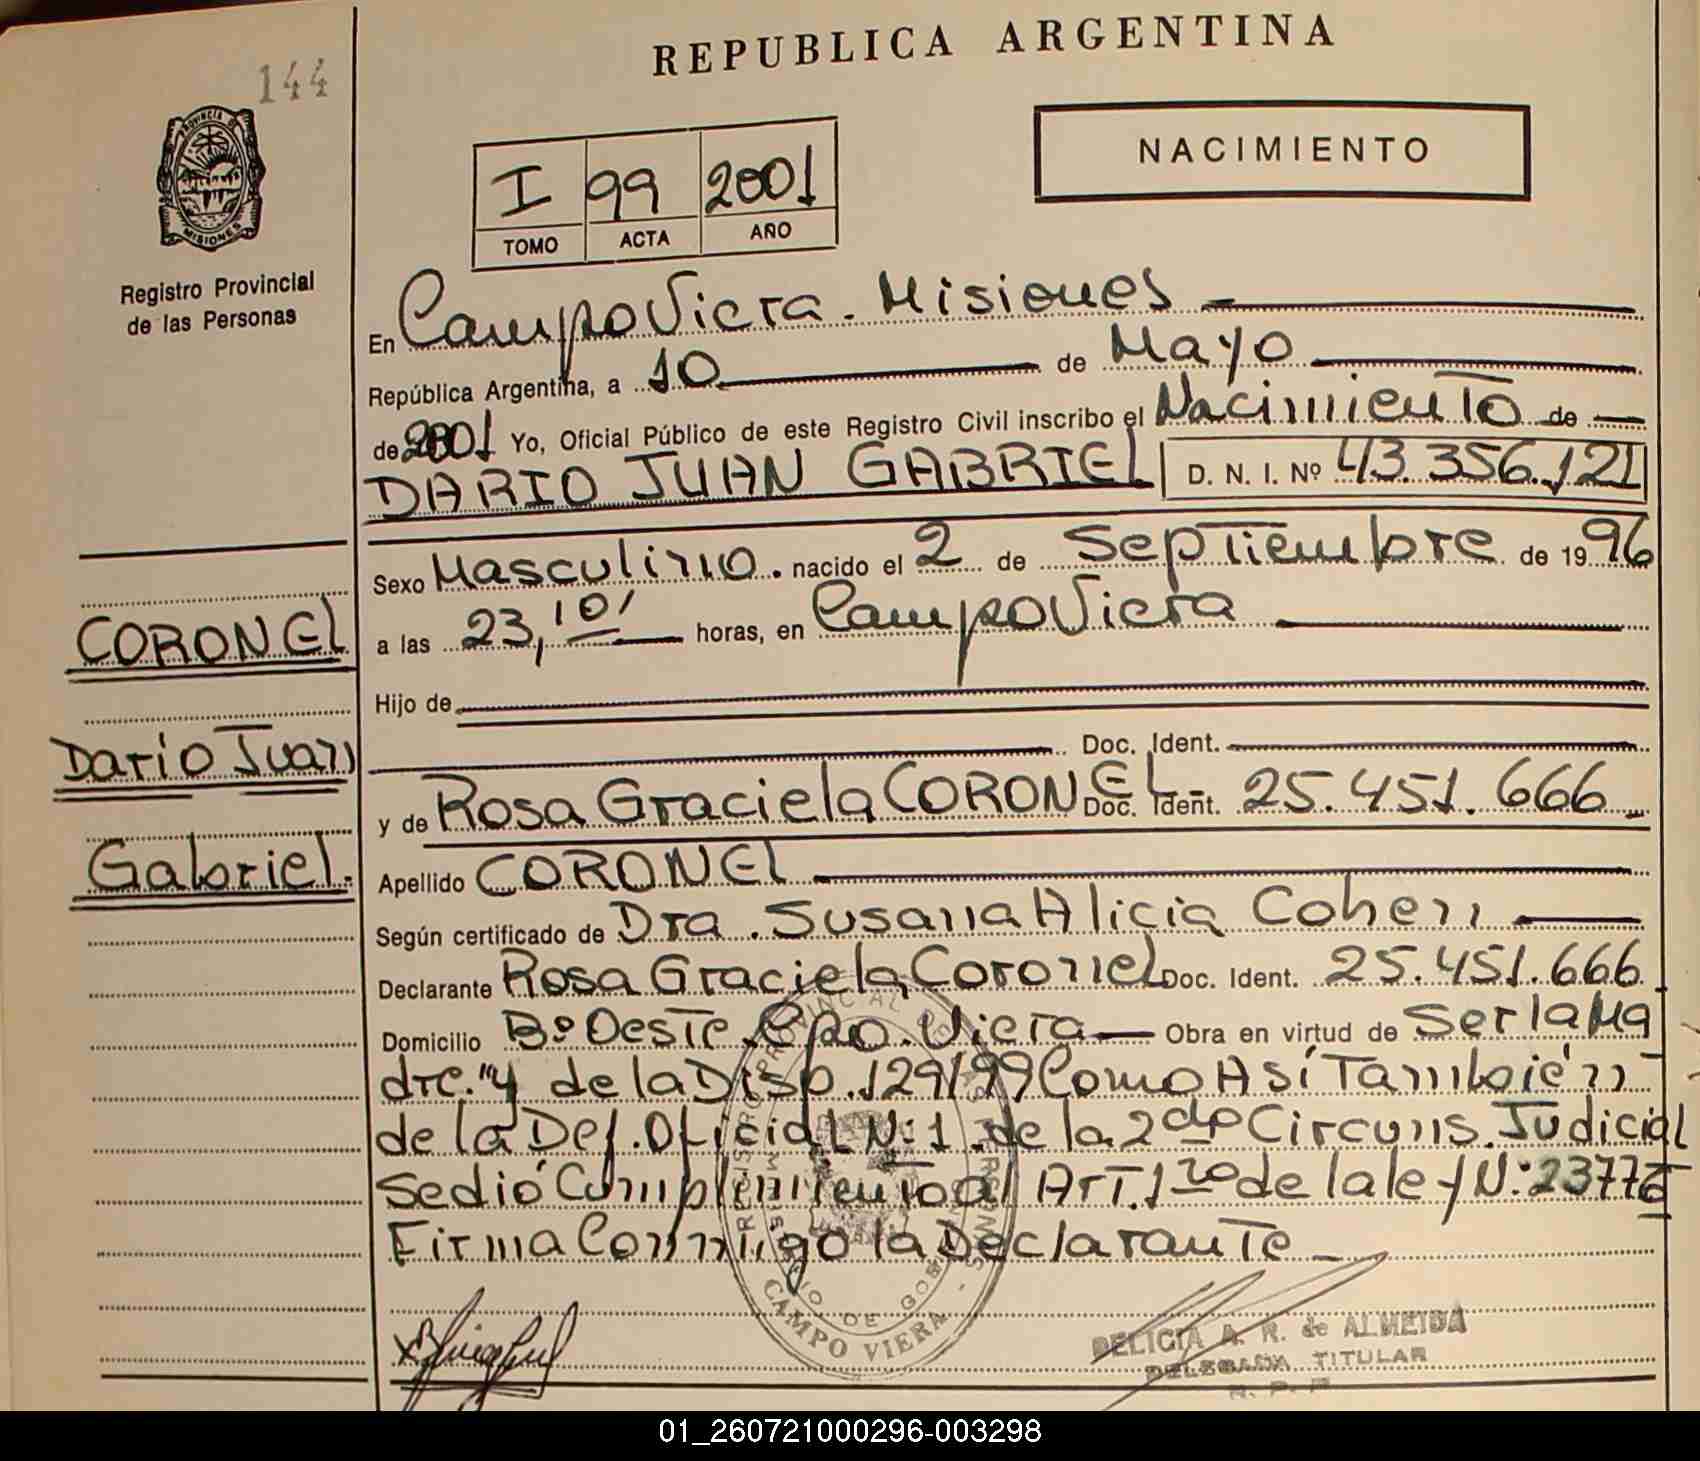 144
REPUBLICA ARGENTINA
NACIMIENTO
I 99 2001
TOMO ACTA AÑO
PROVINCIA DE
MISIONES
Registro Provincial
de las Personas
En Campo Viera. Misiones
República Argentina, a 10 de Mayo
de 2001 Yo, Oficial Público de este Registro Civil inscribo el Nacimiento de
DARIO JUAN GABRIEL D. N. I. Nº 43.356.121
Sexo Masculino. nacido el 2 de Septiembre de 1996
a las 23,10' horas, en Campo Viera
Hijo de
Doc. Ident.
y de Rosa Graciela CORONEL - Doc. Ident. 25.451.666
Apellido CORONEL
Según certificado de Dra. Susana Alicia Cohen
Declarante Rosa Graciela Coronel Doc. Ident. 25.451.666
Domicilio Bº Oeste Cpo. Viera Obra en virtud de Ser la Ma
dre. "y de la Disp. 129/99 Como Así También
de la Def. Oficial N:1 de la 2da Circuns. Judicial
Se dió Cumplimiento al Art. 1ro de la ley N: 23776
Firma Conmigo la Declarante
CORONEL
Dario Juan
Gabriel.
REGISTRO PROVINCIAL DE LAS PERSONAS
CAMPO VIERA
DELICIA A. R. de ALMEIDA
DELEGADA TITULAR
R. P. P.
01_260721000296-003298